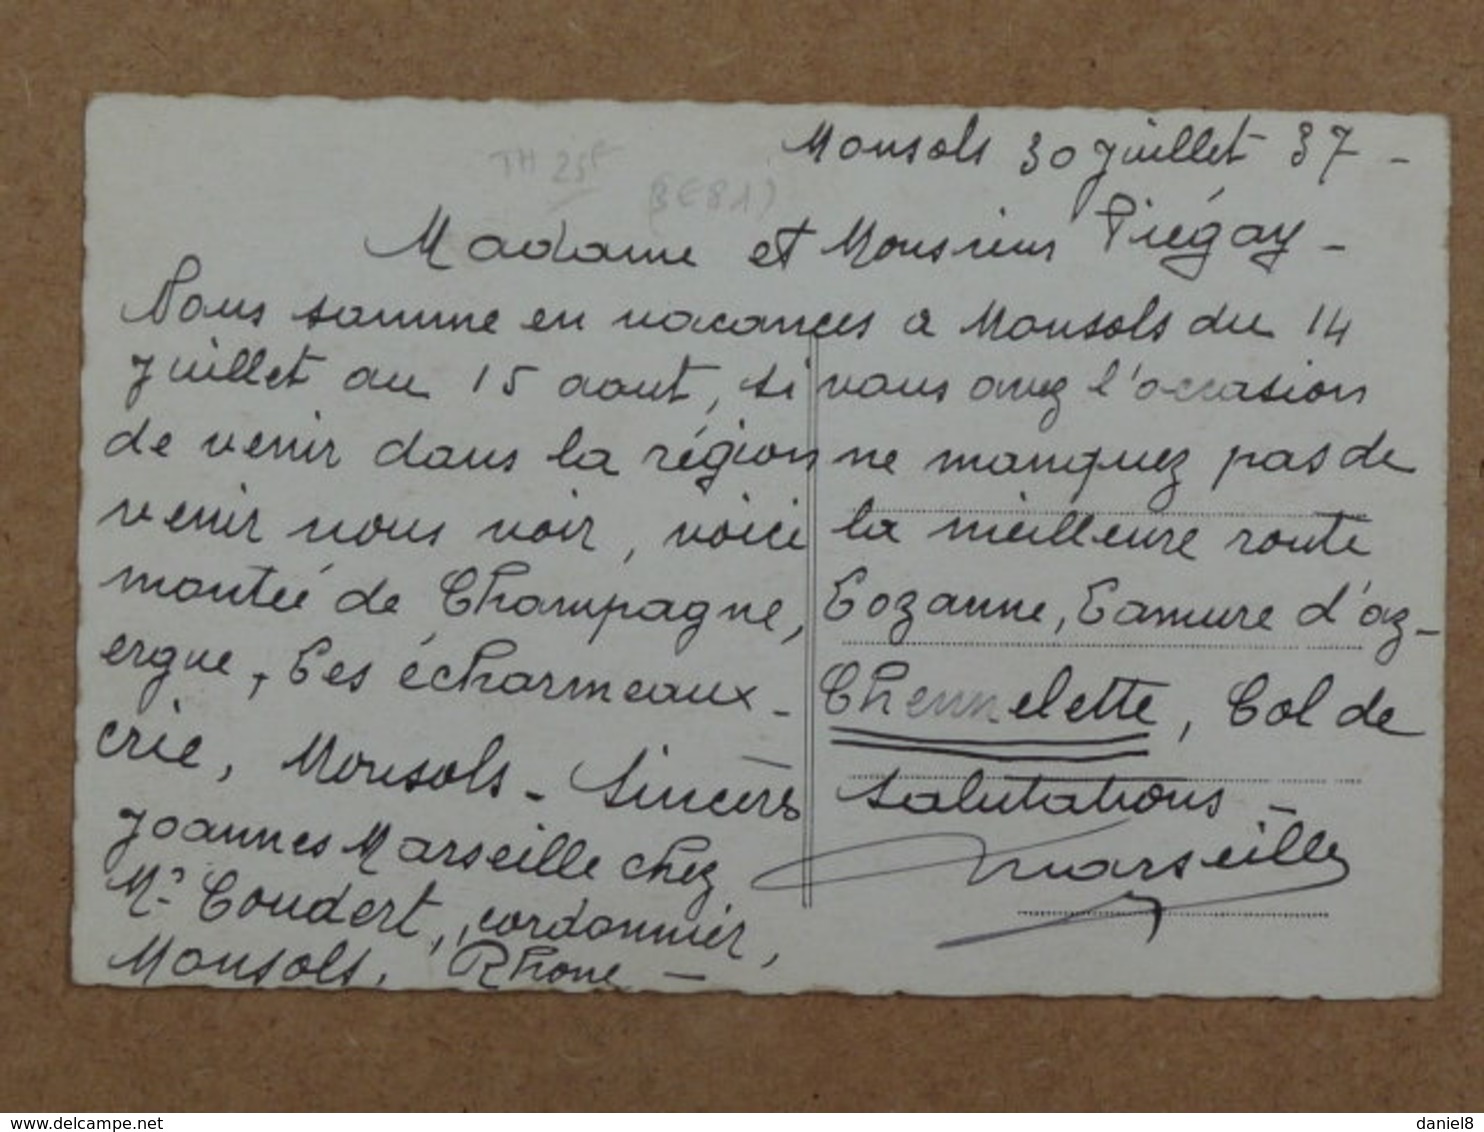 Monsols 30 juillet 37 -
TH 25F
Madame et Monsieur Piégay -
Nous somme en vacances a Monsols du 14
juillet au 15 aout, si vous avez l'occasion
de venir dans la région ne manquez pas de
venir nous voir, voici la meilleure route
montée de Champagne, Lozanne, Lamure d'az-
ergue, Les écharmeaux - Chennelette, Col de
crie, Monsols - Sincères salutations -
Joannes Marseille chez
Mr Coudert, cordonnier,
Monsols, Rhone -
Marseille
delcampe.net
daniel8